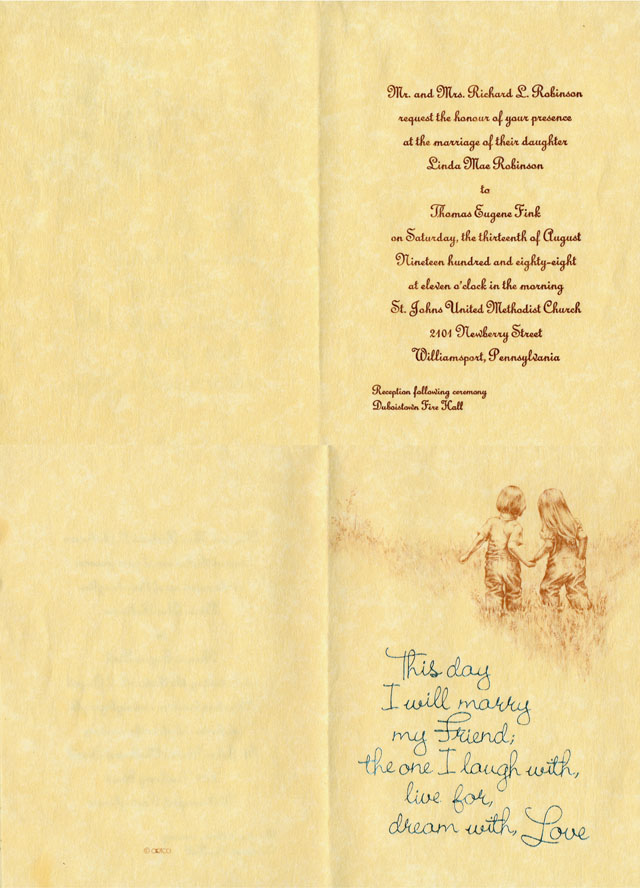 Mr. and Mrs. Richard L. Robinson
request the honour of your presence
at the marriage of their daughter
Linda Mae Robinson
to
Thomas Eugene Fink
on Saturday, the thirteenth of August
Nineteen hundred and eighty-eight
at eleven o'clock in the morning
St. Johns United Methodist Church
2101 Newberry Street
Williamsport, Pennsylvania
Reception following ceremony
Duboistown Fire Hall
This day
I will marry
my Friend;
the one I laugh with,
live for,
dream with, Love